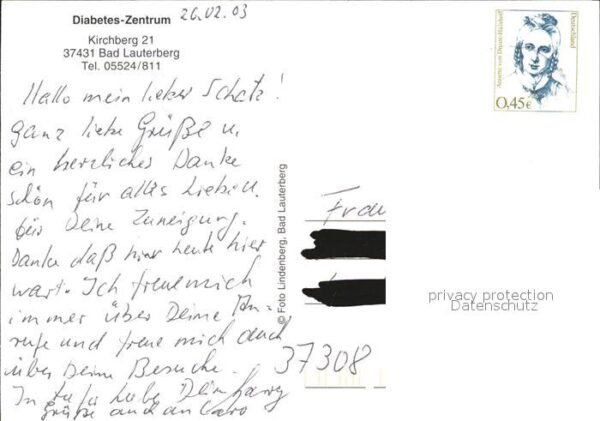 Diabetes-Zentrum
Kirchberg 21
37431 Bad Lauterberg
Tel. 05524/811
20.02.03
Annette von Droste-Hülshoff
Deutschland
0,45€
Hallo mein lieber Schatz!
ganz liebe Grüße u.
ein herzliches Danke
schön für alles Liebe u.
für Deine Zuneigung.
Danke daß heute hier
warst. Ich freue mich
immer über Deine An-
rufe und freue mich auch
über Deine Besuche.
In Liebe Dein
Grüße auch an Caro
© Foto Lindenberg, Bad Lauterberg
Frau
37308
privacy protection
Datenschutz